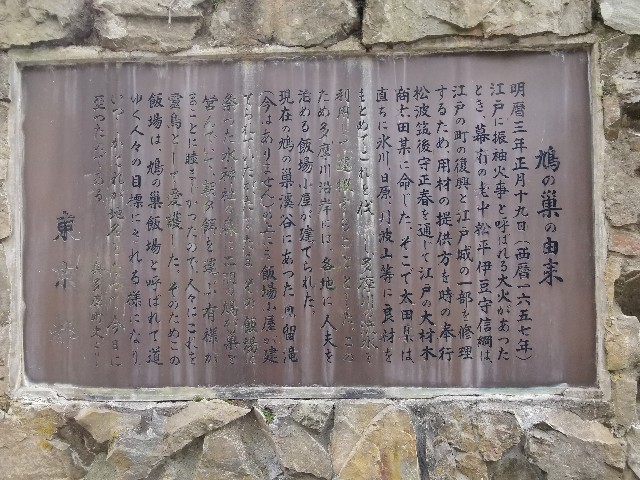 鳩の巣の由来
明暦三年正月十九日(西暦一六五七年)
江戸に振袖火事と呼ばれる大火があった
とき、幕府の老中松平伊豆守信綱は、
江戸の町の復興と江戸城の一部を修理
するため用材の提供方を時の奉行
松波筑後守正春を通じて江戸の大材木
商太田某に命じた。そこで太田某は、
直ちに氷川日原小波上等に良材を
もとめ、これを伐
ため多摩川沿岸には各地に人夫を
治める飯場小屋が建てられた。
現在の鳩の巣渓谷にあった
(今はありません)の上にも飯場小屋が建
てられていたが、たまたまその飯場に
祭った水神社の
営んで、朝夕餌を運ぶ有様が
まことに睦まじかったので、人々にこれを
霊鳥として愛護した。そのためこの
飯場は、鳩の巣飯場と呼ばれて道
ゆく人々の目標にされる様になり
いつしかそれが地名
至ったのである。
東京都